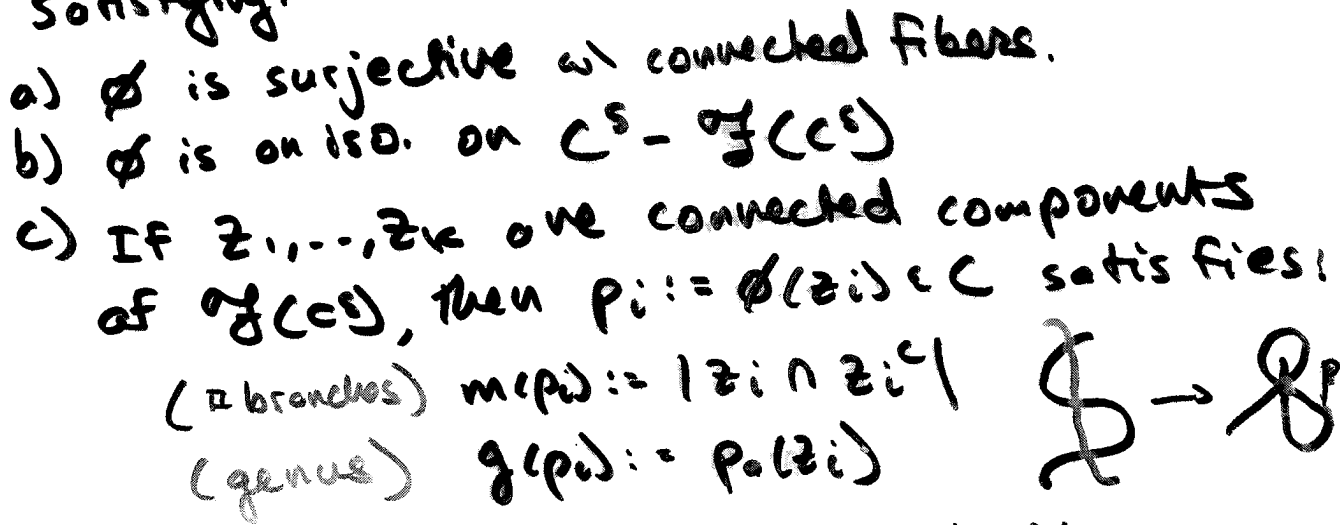 satisfying:
a) ϕ is surjective w\ connected fibers.
b) ϕ is an iso. on C^s - 𝒵(C^s)
c) If Z_1,..,Z_k are connected components
of 𝒵(C^s), then p_i := ϕ(Z_i) ∈ C satisfies:
(# branches) m(p_i) := |Z_i ∩ Z_i^c|
(genus) g(p_i) := p_a(Z_i)
→ p